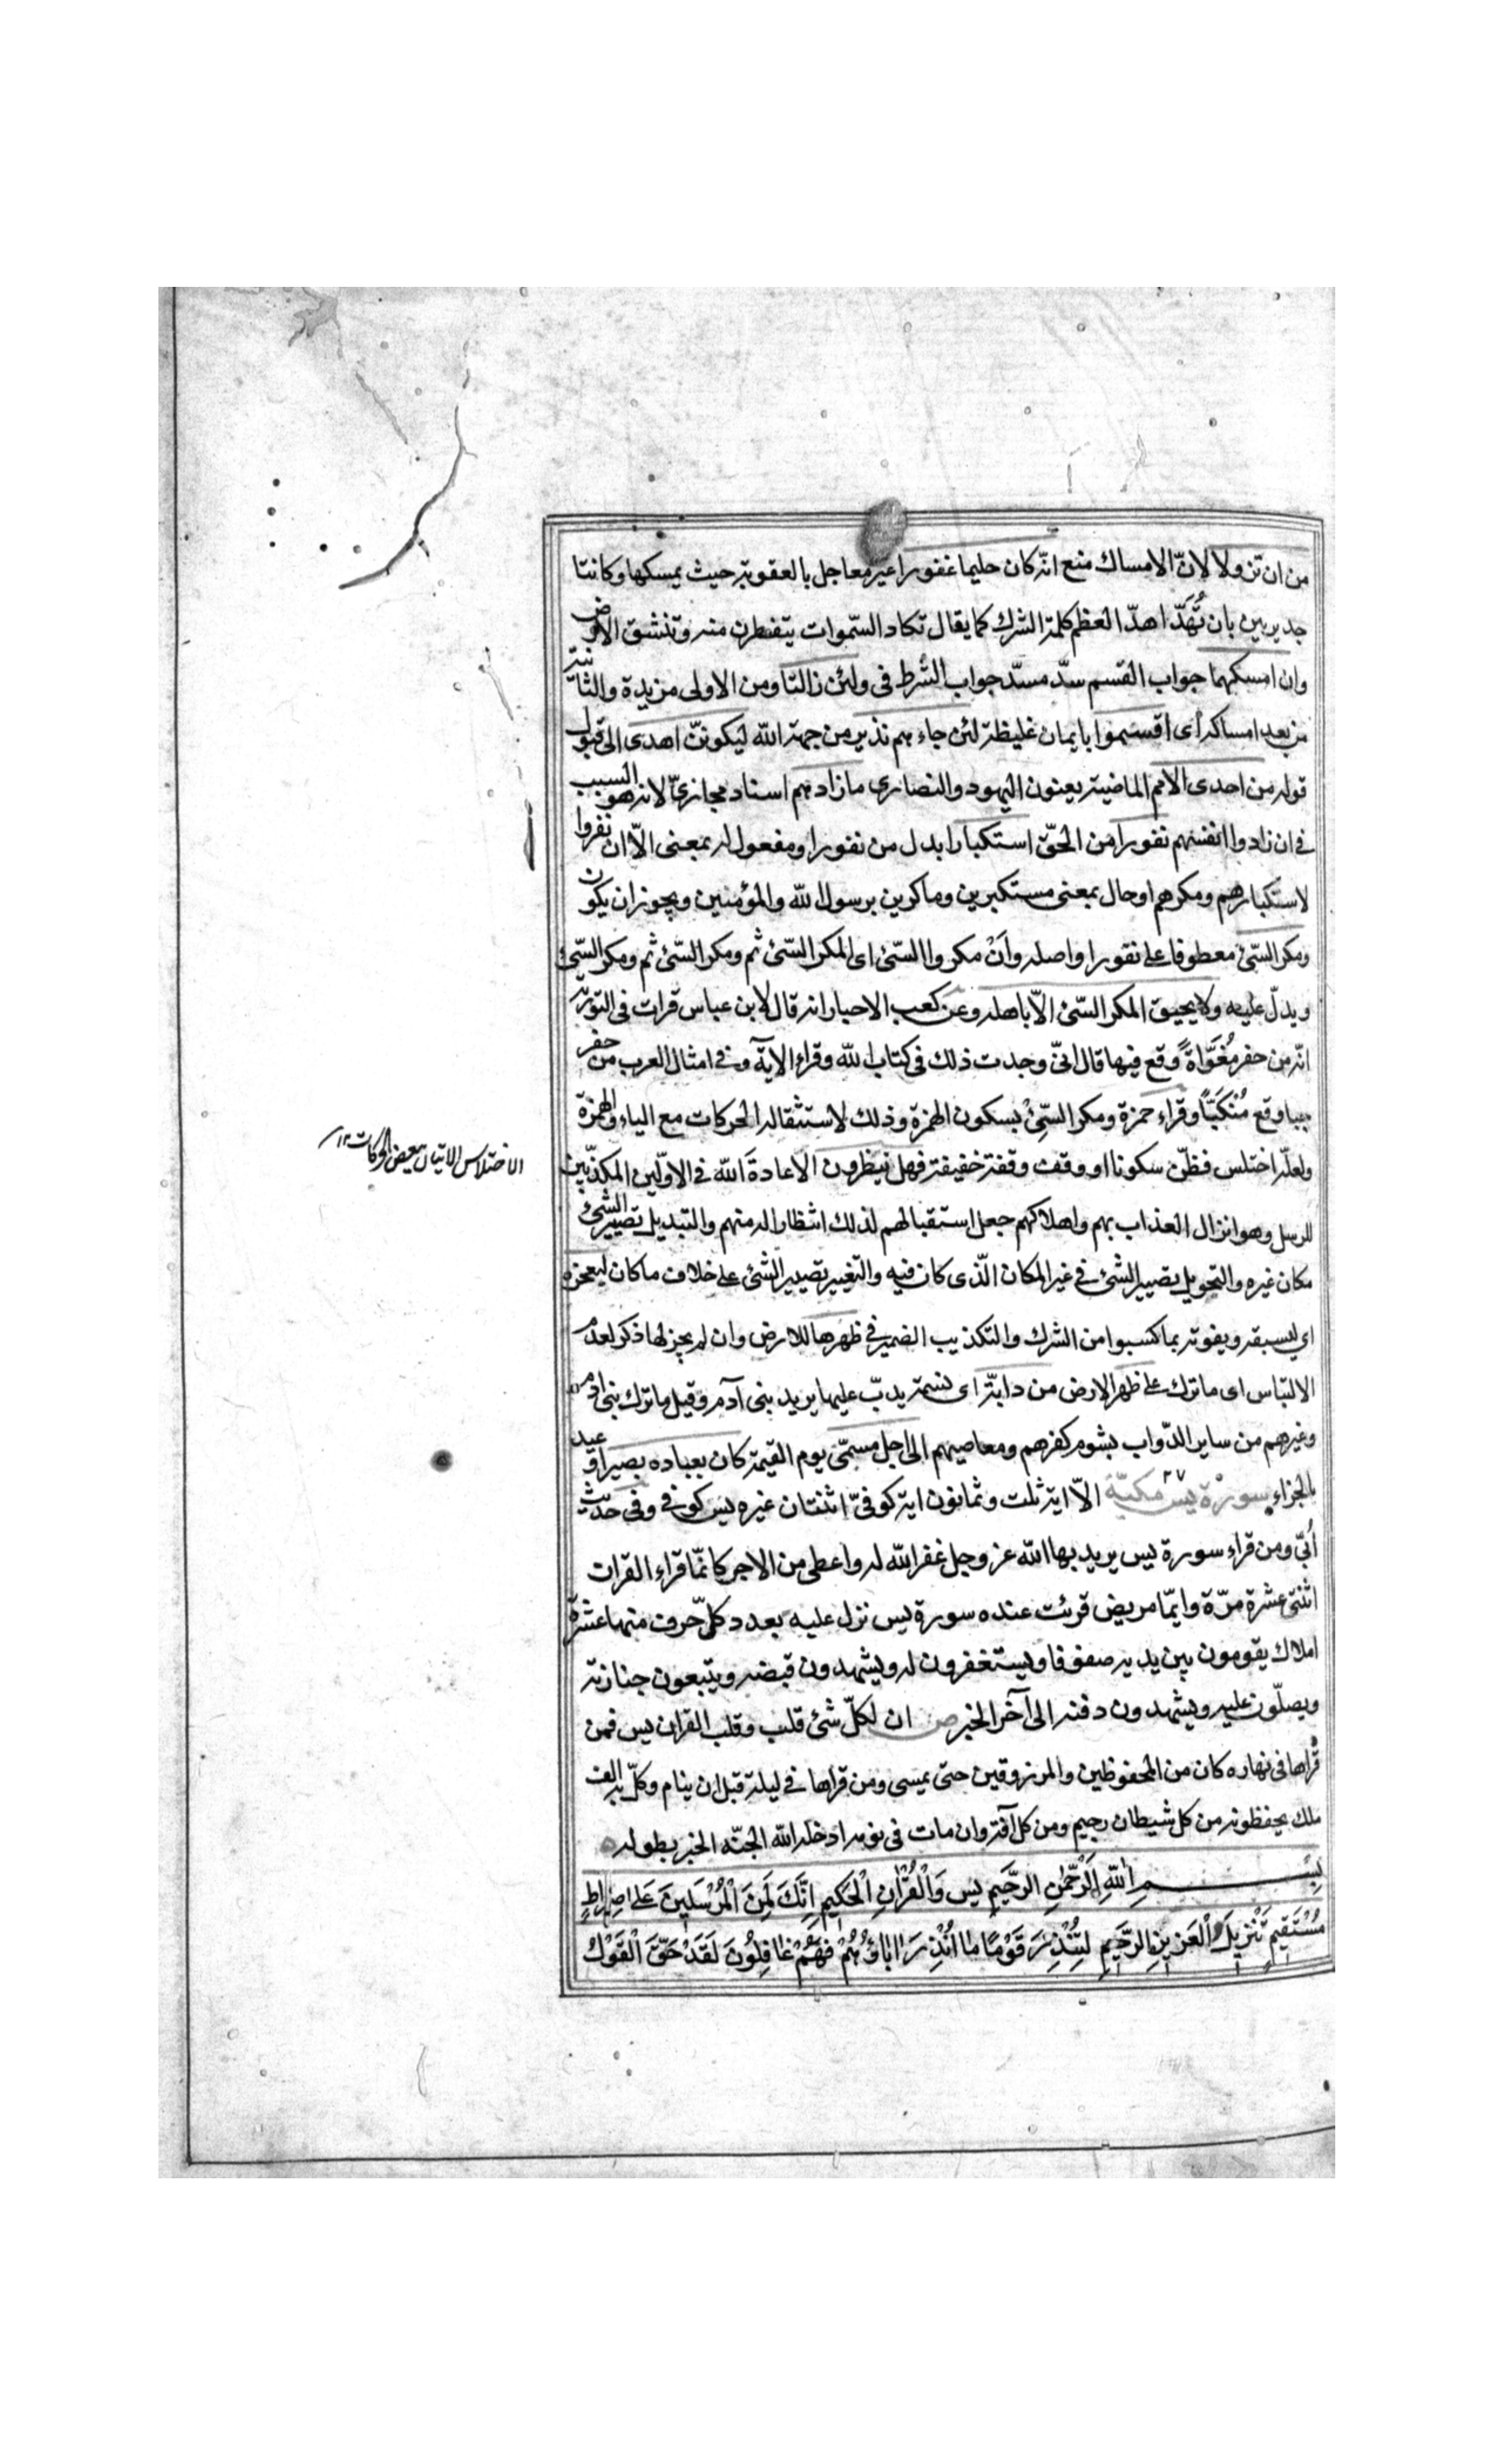 من ان تزولا لانّ الامساك منع انّه كان حليما غفورا غير معاجل بالعقوبة حيث يمسكها وكانتا
جديرين بان تُهَدّا هدّا لعظم كلمة الشرك كما يقال تكاد السّموات يتفطرن منه وتنشق الارض
وان امسكهما جواب القسم سدّ مسدّ جواب الشرط فى ولئن زالتا ومن الاولى مزيدة والثانية
من بعد امساكه اى اقسموا بايمان غليظة لئن جاءهم نذير من جهة الله ليكوننّ اهدى الى قبول
قوله من احدى الامم الماضية يعنون اليهود والنصارى مازادهم اسناد مجازىّ لانه هو السبب
فى ان زادوا انفسهم نفورا من الحقّ استكبارا بدل من نفورا ومفعول له بمعنى الّا ان نفروا
لاستكبارهم ومكرهم او حال بمعنى مستكبرين وماكرين برسول الله والمؤمنين ويجوز ان يكون
ومكر السّيئ معطوفا على نفورا واصله وانْ مكروا السّيئ اى المكر السّيئ ثم ومكر السّيئ ثم ومكر السّيئ
ويدلّ عليه ولا يحيق المكر السّيئ الّا باهله وعن كعب الاحبار انه قال لابن عباس قرات فى التورية
انّه من حفر مُغَوّاةً وقع فيها قال انّى وجدت ذلك فى كتاب الله وقراء الاية وفى امثال العرب من حفر
جبا وقع مُنْكَبّاً وقراء حمزة ومكر السّيِئْ بسكون الهمزة وذلك لاستثقاله الحركات مع الياء والهمزة
ولعلّه اختلس فظنّ سكونا او وقف وقفة خفيفة فهل ينظرون الا عادةَ الله فى الاوّلين المكذّبين
للرسل وهو انزال العذاب بهم واهلاكهم جعل استقبالهم لذلك انتظارا له منهم والتبديل تصيير الشئ
مكان غيره والتحويل تصيير الشئ فى غير المكان الّذى كان فيه والتغيير تصيير الشئ على خلاف ما كان ليعجزه
اى ليسبقه ويفوته بما كسبوا من الشرك والتكذيب الضمير فى ظهرها للارض وان لم يجز لها ذكر لعدم
الالتباس اى ما ترك على ظهر الارض من دابّة اى نسمة يدبّ عليها يريد بنى آدم وقيل ما ترك بنى ادم
وغيرهم من ساير الدّواب بشوم كفرهم ومعاصيهم الى اجل مسمّى يوم القيمة كان بعباده بصيرا وعيد
بالجزاء سورة يس مكيّة ٢٧ الّا اية ثلث وثمانون اية كوفىّ اثنتان غيره يس كوفى وفى حديث
اُبىّ ومن قراء سورة يس يريد بها الله عز وجل غفر الله له واعطى من الاجر كانّما قراء القران
اثنتى عشرة مرّة وايّما مريض قرئت عنده سورة يس نزل عليه بعدد كلّ حرف منها عشرة
املاك يقومون بين يديه صفوفا ويستغفرون له ويشهدون قبضه ويتبعون جنازته
ويصلّون عليه ويشهدون دفنه الى آخر الخبر ص ان لكلّ شئ قلب وقلب القران يس فمن
قراها فى نهاره كان من المحفوظين والمرزوقين حتى يمسى ومن قراها فى ليلة قبل ان ينام وكلّ به الف
ملك يحفظونه من كل شيطان رجيم ومن كل آفة وان مات فى نومه ادخله الله الجنّه الخبر بطوله
بِسْمِ اللهِ الرَّحْمٰنِ الرَّحِيمِ يس وَالْقُرْانِ الْحَكِيمِ اِنَّكَ لَمِنَ الْمُرْسَلِينَ عَلى صِرَاطٍ
مُسْتَقِيمٍ تَنْزِيلَ الْعَزِيزِ الرَّحِيمِ لِتُنْذِرَ قَوْمًا مَا اُنْذِرَ اٰبَاؤُهُمْ فَهُمْ غَافِلُونَ لَقَدْ حَقَّ الْقَوْلُ
الاختلاس الاتيان ببعض الحركات ١٢